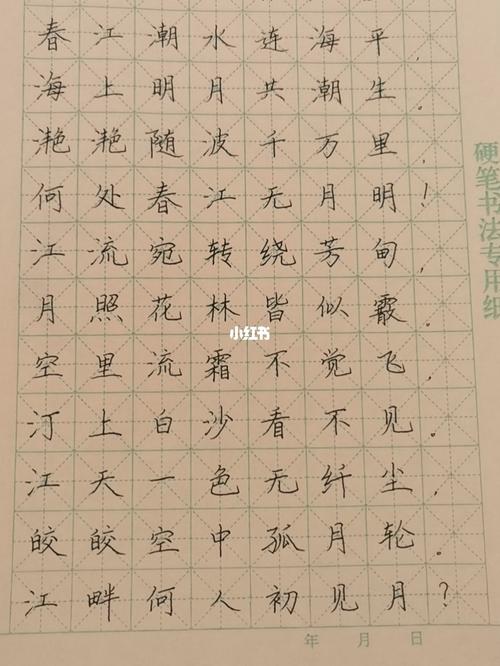 春江潮水连海平,
海上明月共潮生。
滟滟随波千万里,
何处春江无月明!
江流宛转绕芳甸,
月照花林皆似霰。
空里流霜不觉飞,
汀上白沙看不见。
江天一色无纤尘,
皎皎空中孤月轮。
江畔何人初见月?
硬笔书法专用纸
小红书
年 月 日